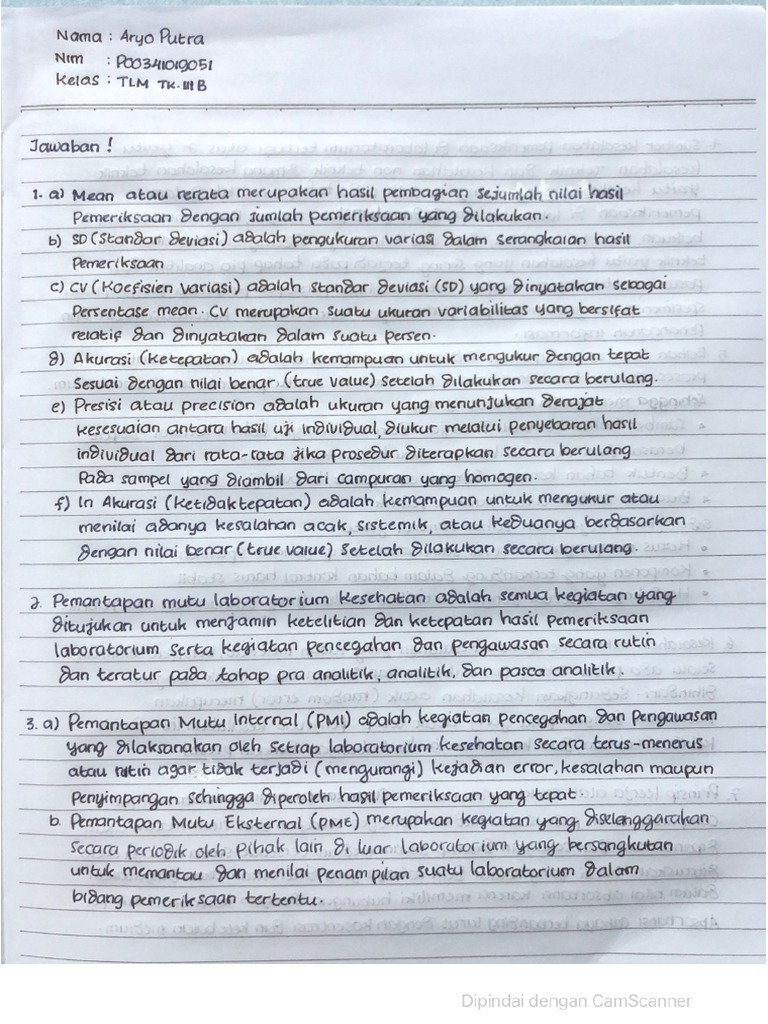 Nama : Aryo Putra
Nim : P00341019051
Kelas : TLM TK.III B
Jawaban !
1. a) Mean atau rerata merupakan hasil pembagian sejumlah nilai hasil
Pemeriksaan dengan jumlah pemeriksaan yang dilakukan.
b) SD (Standar deviasi) adalah pengukuran variasi dalam serangkaian hasil
Pemeriksaan
c) CV (Koefisien Variasi) adalah standar deviasi (SD) yang dinyatakan sebagai
Persentase mean. CV merupakan suatu ukuran variabilitas yang bersifat
relatif dan dinyatakan dalam suatu persen.
d) Akurasi (ketepatan) adalah kemampuan untuk mengukur dengan tepat
Sesuai dengan nilai benar (true value) setelah dilakukan secara berulang.
e) Presisi atau precision adalah ukuran yang menunjukan derajat
kesesuaian antara hasil uji individual, diukur melalui penyebaran hasil
individual dari rata-rata jika prosedur diterapkan secara berulang
Pada sampel yang diambil dari campuran yang homogen.
f) In Akurasi (Ketidaktepatan) adalah kemampuan untuk mengukur atau
menilai adanya kesalahan acak, sistemik, atau keduanya berdasarkan
dengan nilai benar (true value) setelah dilakukan secara berulang.
2. Pemantapan mutu laboratorium kesehatan adalah semua kegiatan yang
ditujukan untuk menjamin ketelitian dan ketepatan hasil pemeriksaan
laboratorium serta kegiatan pencegahan dan pengawasan secara rutin
dan teratur pada tahap pra analitik, analitik, dan pasca analitik.
3. a) Pemantapan Mutu Internal (PMI) adalah kegiatan pencegahan dan Pengawasan
yang dilaksanakan oleh setiap laboratorium kesehatan secara terus-menerus
atau rutin agar tidak terjadi (mengurangi) kejadian error, kesalahan maupun
Penyimpangan sehingga diperoleh hasil pemeriksaan yang tepat.
b. Pemantapan Mutu Eksternal (PME) merupakan kegiatan yang diselenggarakan
secara periodik oleh pihak lain di luar laboratorium yang bersangkutan
untuk memantau dan menilai penampilan suatu laboratorium dalam
bidang pemeriksaan tertentu.
Dipindai dengan CamScanner